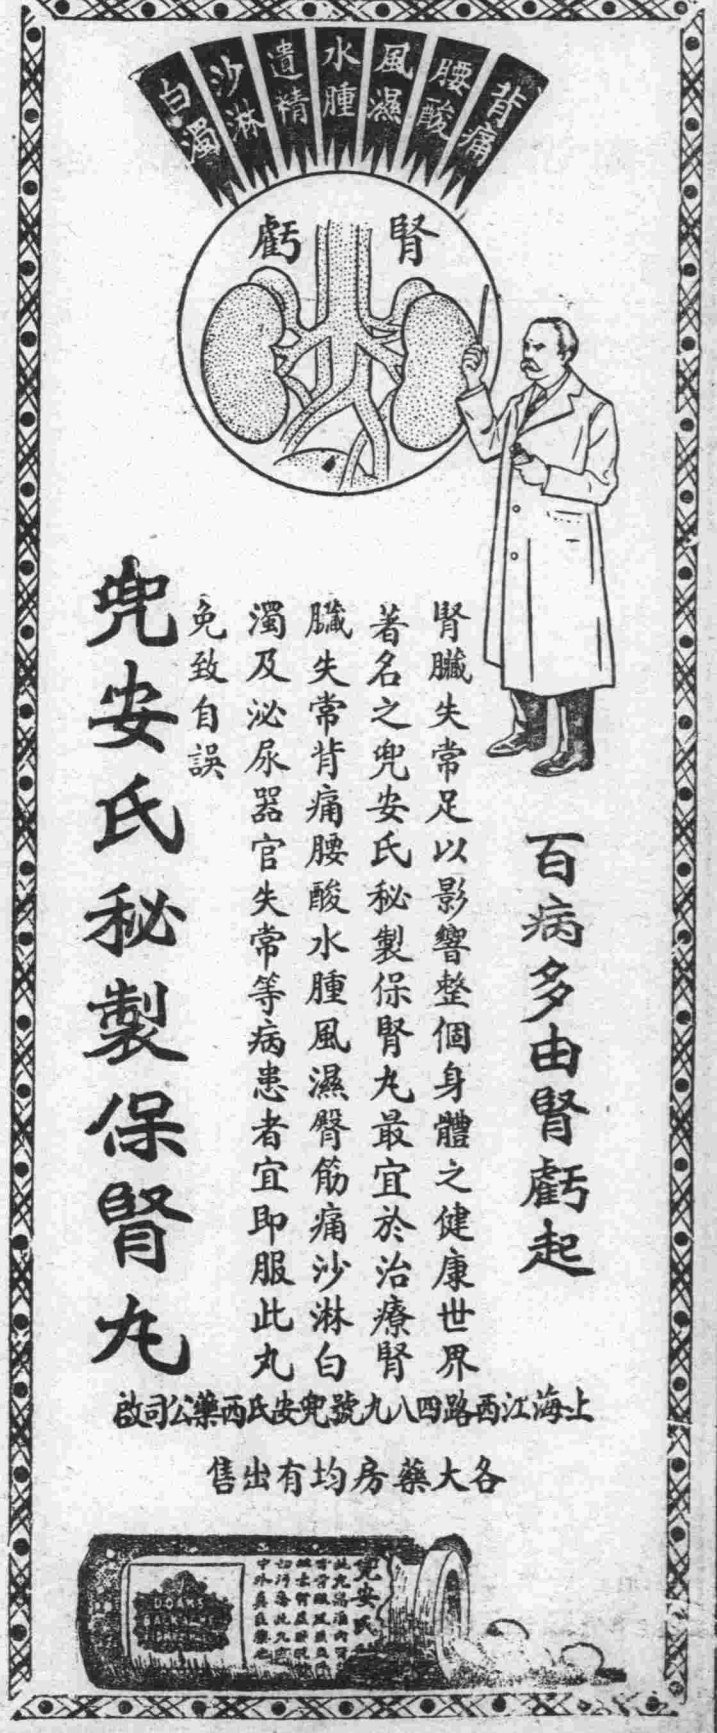 背痛
腰酸
風濕
水腫
遺精
沙淋
白濁
腎虧
百病多由腎虧起
腎臟失常足以影響整個身體之健康世界
著名之兜安氏秘製保腎丸最宜於治療腎
臟失常背痛腰酸水腫風濕臀筋痛沙淋白
濁及泌尿器官失常等病患者宜即服此丸
免致自誤
兜安氏秘製保腎丸
上海江西路四八九號兜安氏西藥公司啟
各大藥房均有出售
兜安氏
DOANS